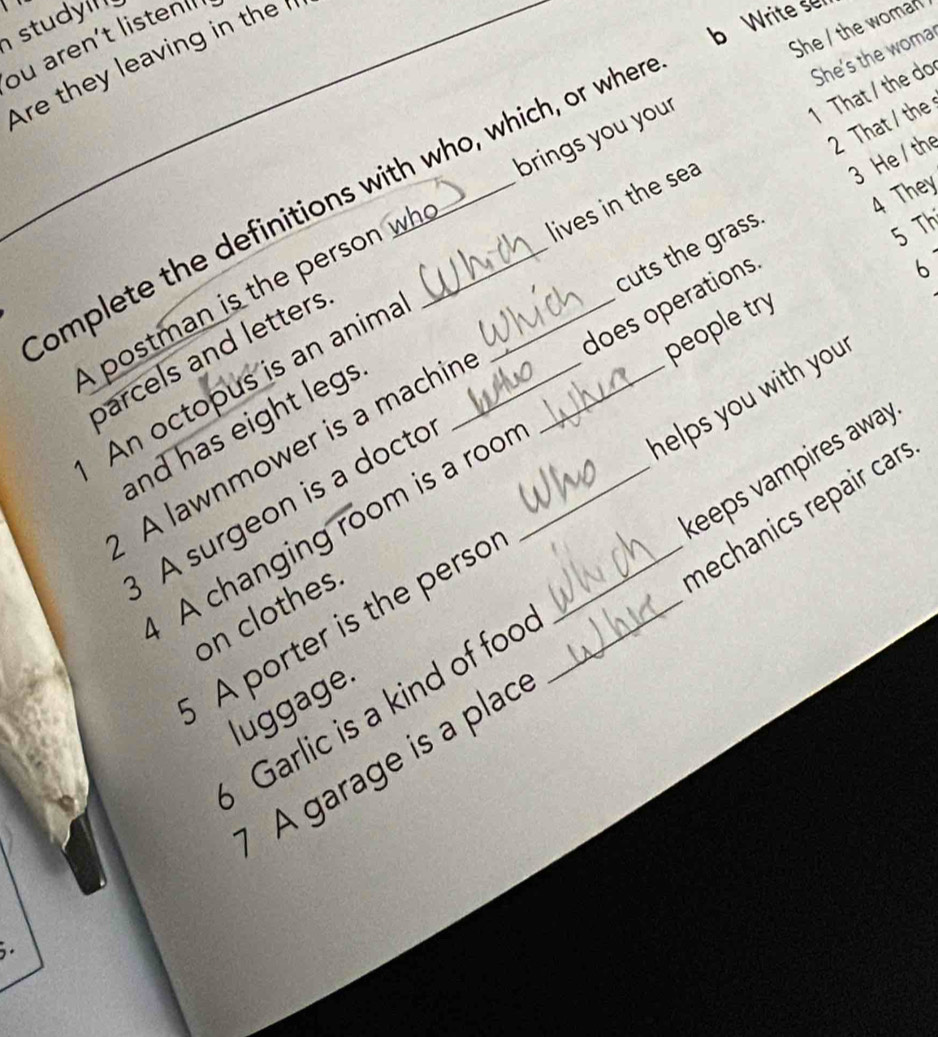 studying
You aren't listening
Are they leaving in the
Complete the definitions with who, which, or where.
A postman is the person who brings you your
parcels and letters.
1 An octopus is an animal Which lives in the sea
and has eight legs.
2 A lawnmower is a machine Which cuts the grass.
3 A surgeon is a doctor who does operations.
4 A changing room is a room Where people try
on clothes.
5 A porter is the person Who helps you with your
luggage.
6 Garlic is a kind of food Which keeps vampires away.
7 A garage is a place Where mechanics repair cars.
b Write
She / the woman
She's the woman
1 That / the
2 That / the
3 He / the
4 They
5
6
s.